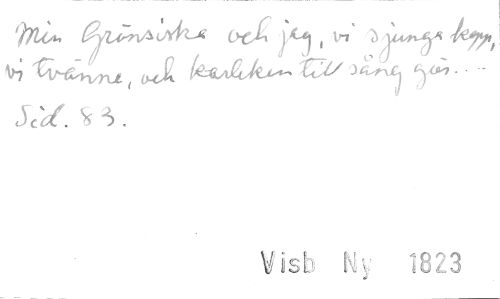 Min Grönsiska och jag, vi sjunga kapp,
vi tvänne, och kärleken till sång gör....
Sid. 83.
Visb Ny 1823